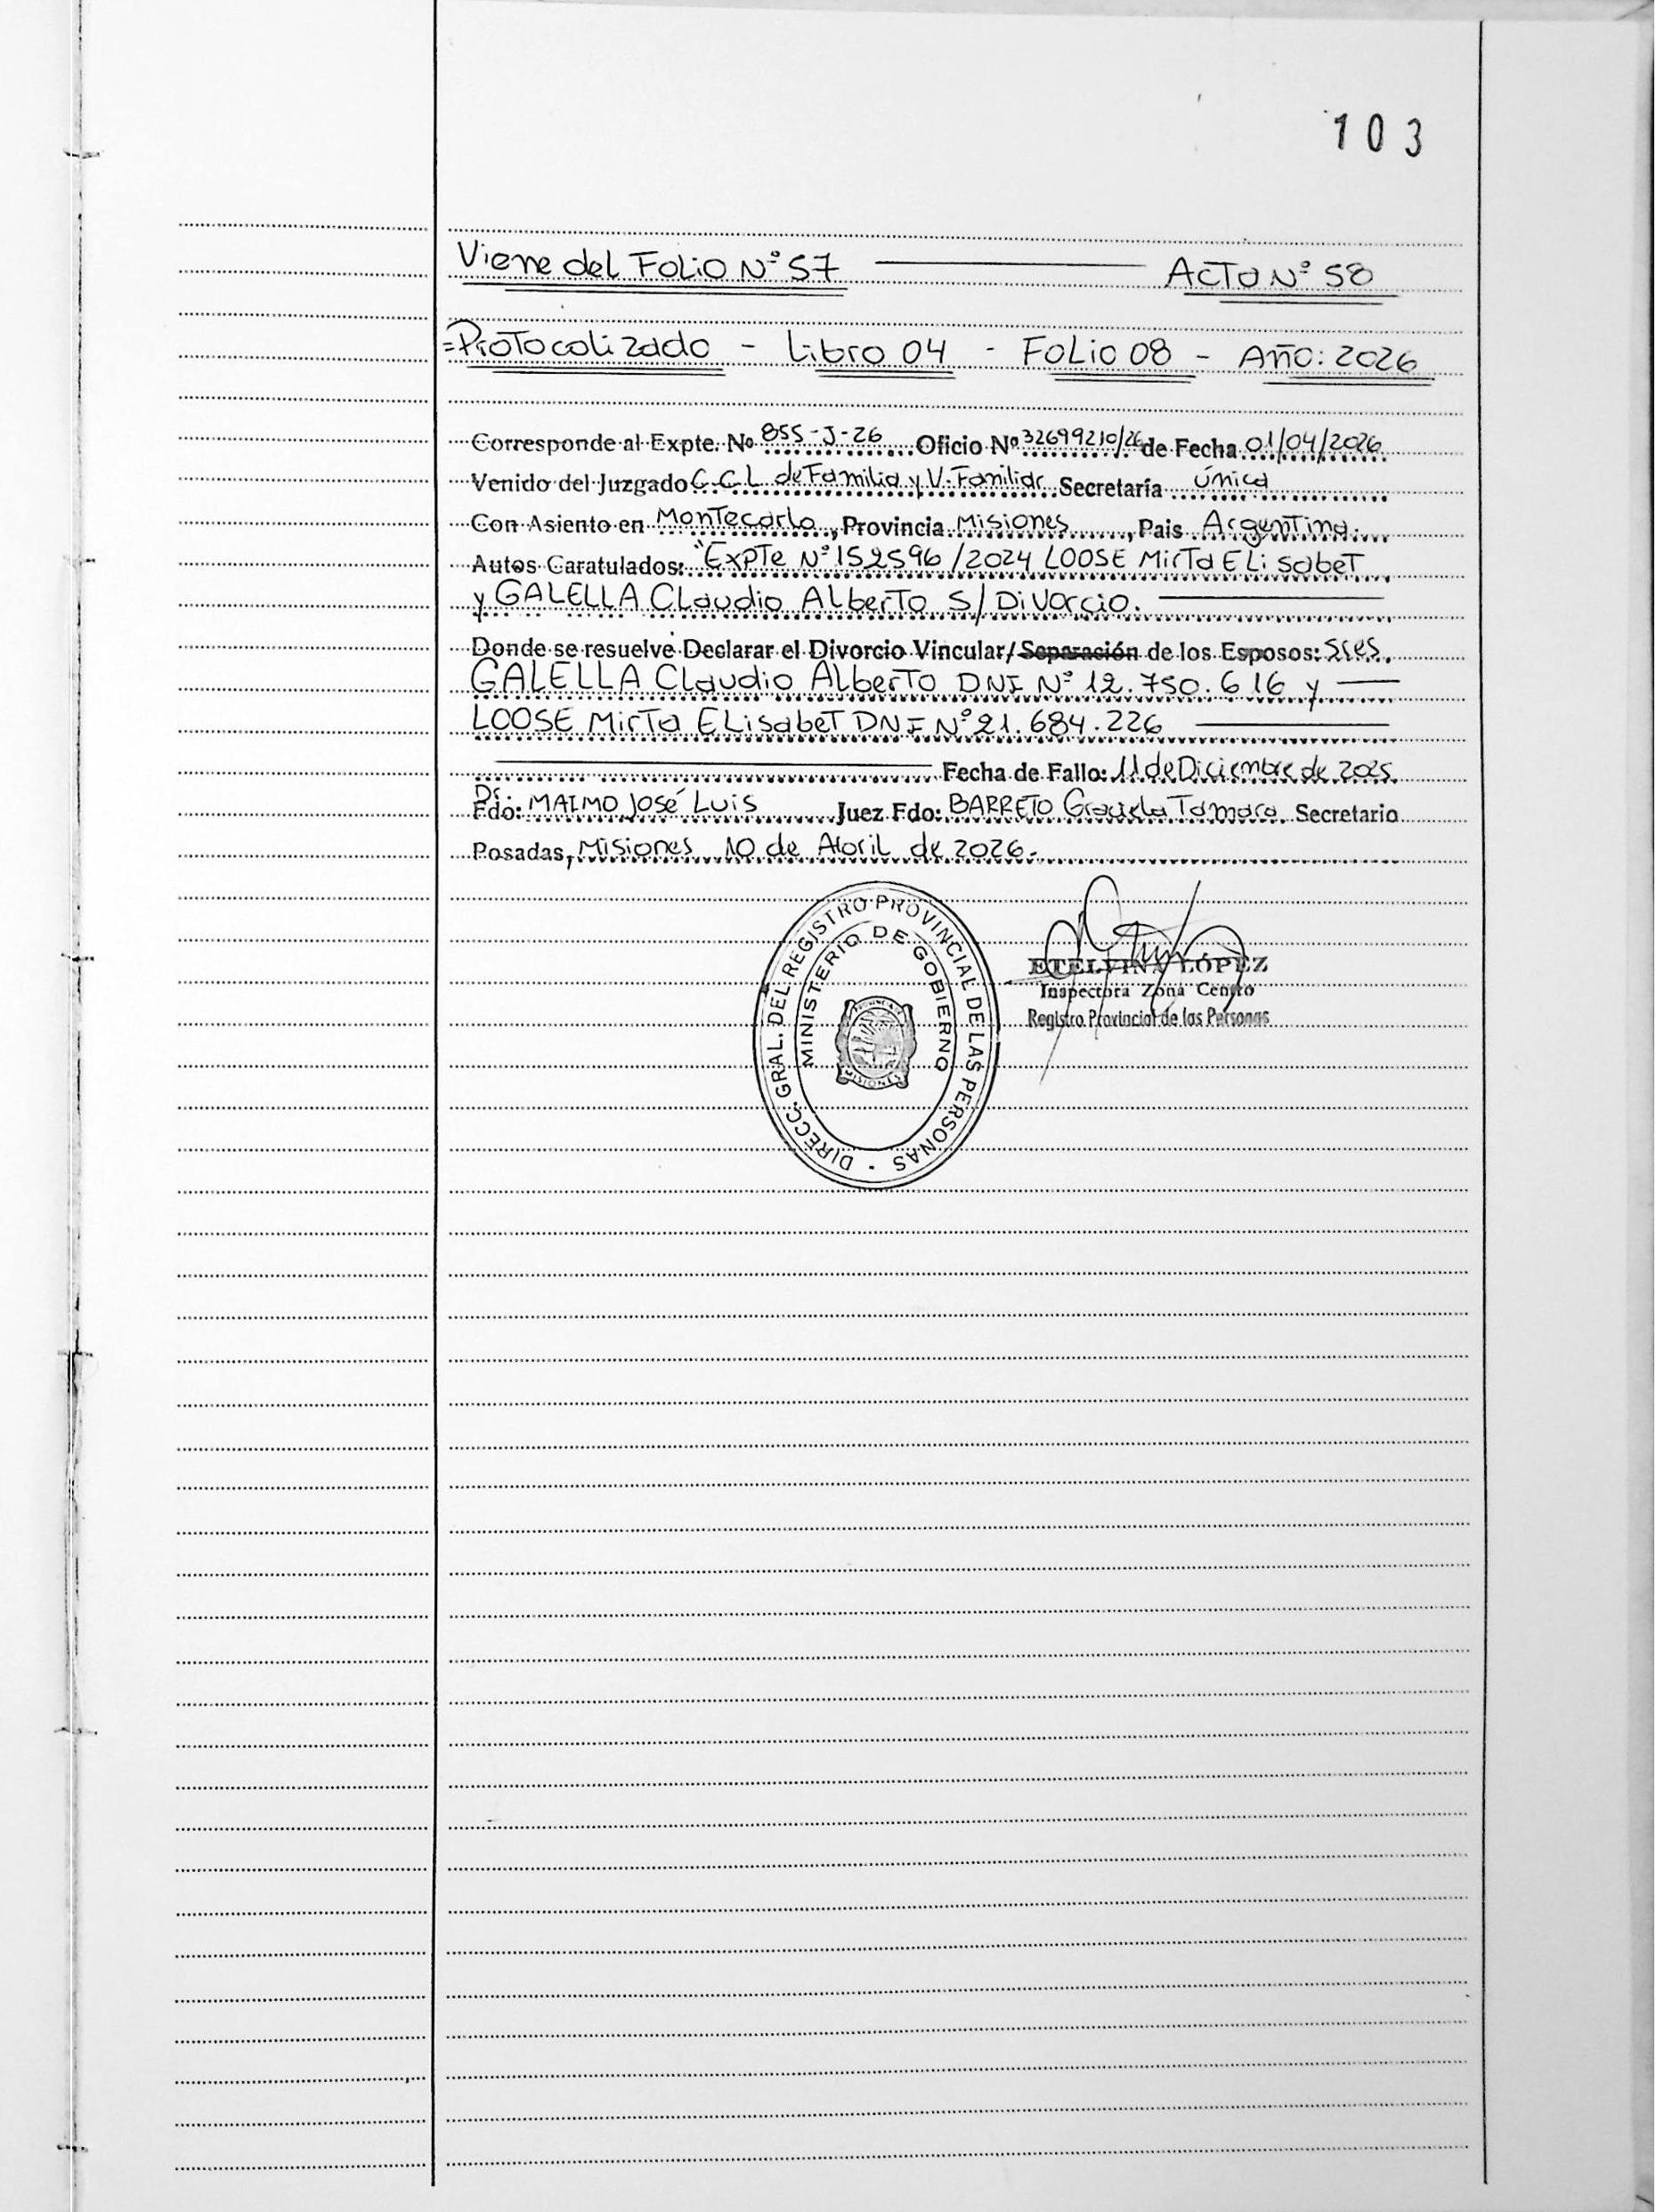 103
Viene del Folio N° 57 Acta N° 58
=Protocolizado - Libro 04 - Folio 08 - Año: 2026
Corresponde al Expte. Nº 855-J-26 Oficio Nº 32699210/26 de Fecha 01/04/2026
Venido del Juzgado C.C.L de Familia y V. Familiar Secretaría única
Con Asiento en Montecarlo, Provincia Misiones, Pais Argentina.
Autos Caratulados: "Expte N° 152596/2024 LOOSE Mirta Elisabet
y GALELLA Claudio Alberto S/ Divorcio.
Donde se resuelve Declarar el Divorcio Vincular/Separación de los Esposos: Sres.
GALELLA Claudio Alberto DNI N° 12.750.616 y
LOOSE Mirta Elisabet DNI N° 21.684.226
Fecha de Fallo: 11 de Diciembre de 2025
Dr.
Fdo: MAIMO José Luis Juez Fdo: BARRETO Graciela Tamara Secretario
Posadas, Misiones 10 de Abril de 2026.
DIRECC. GRAL. DEL REGISTRO PROVINCIAL DE LAS PERSONAS
MINISTERIO DE GOBIERNO
PROVINCIA
MISIONES
ETELVINA LÓPEZ
Inspectora Zona Centro
Registro Provincial de las Personas